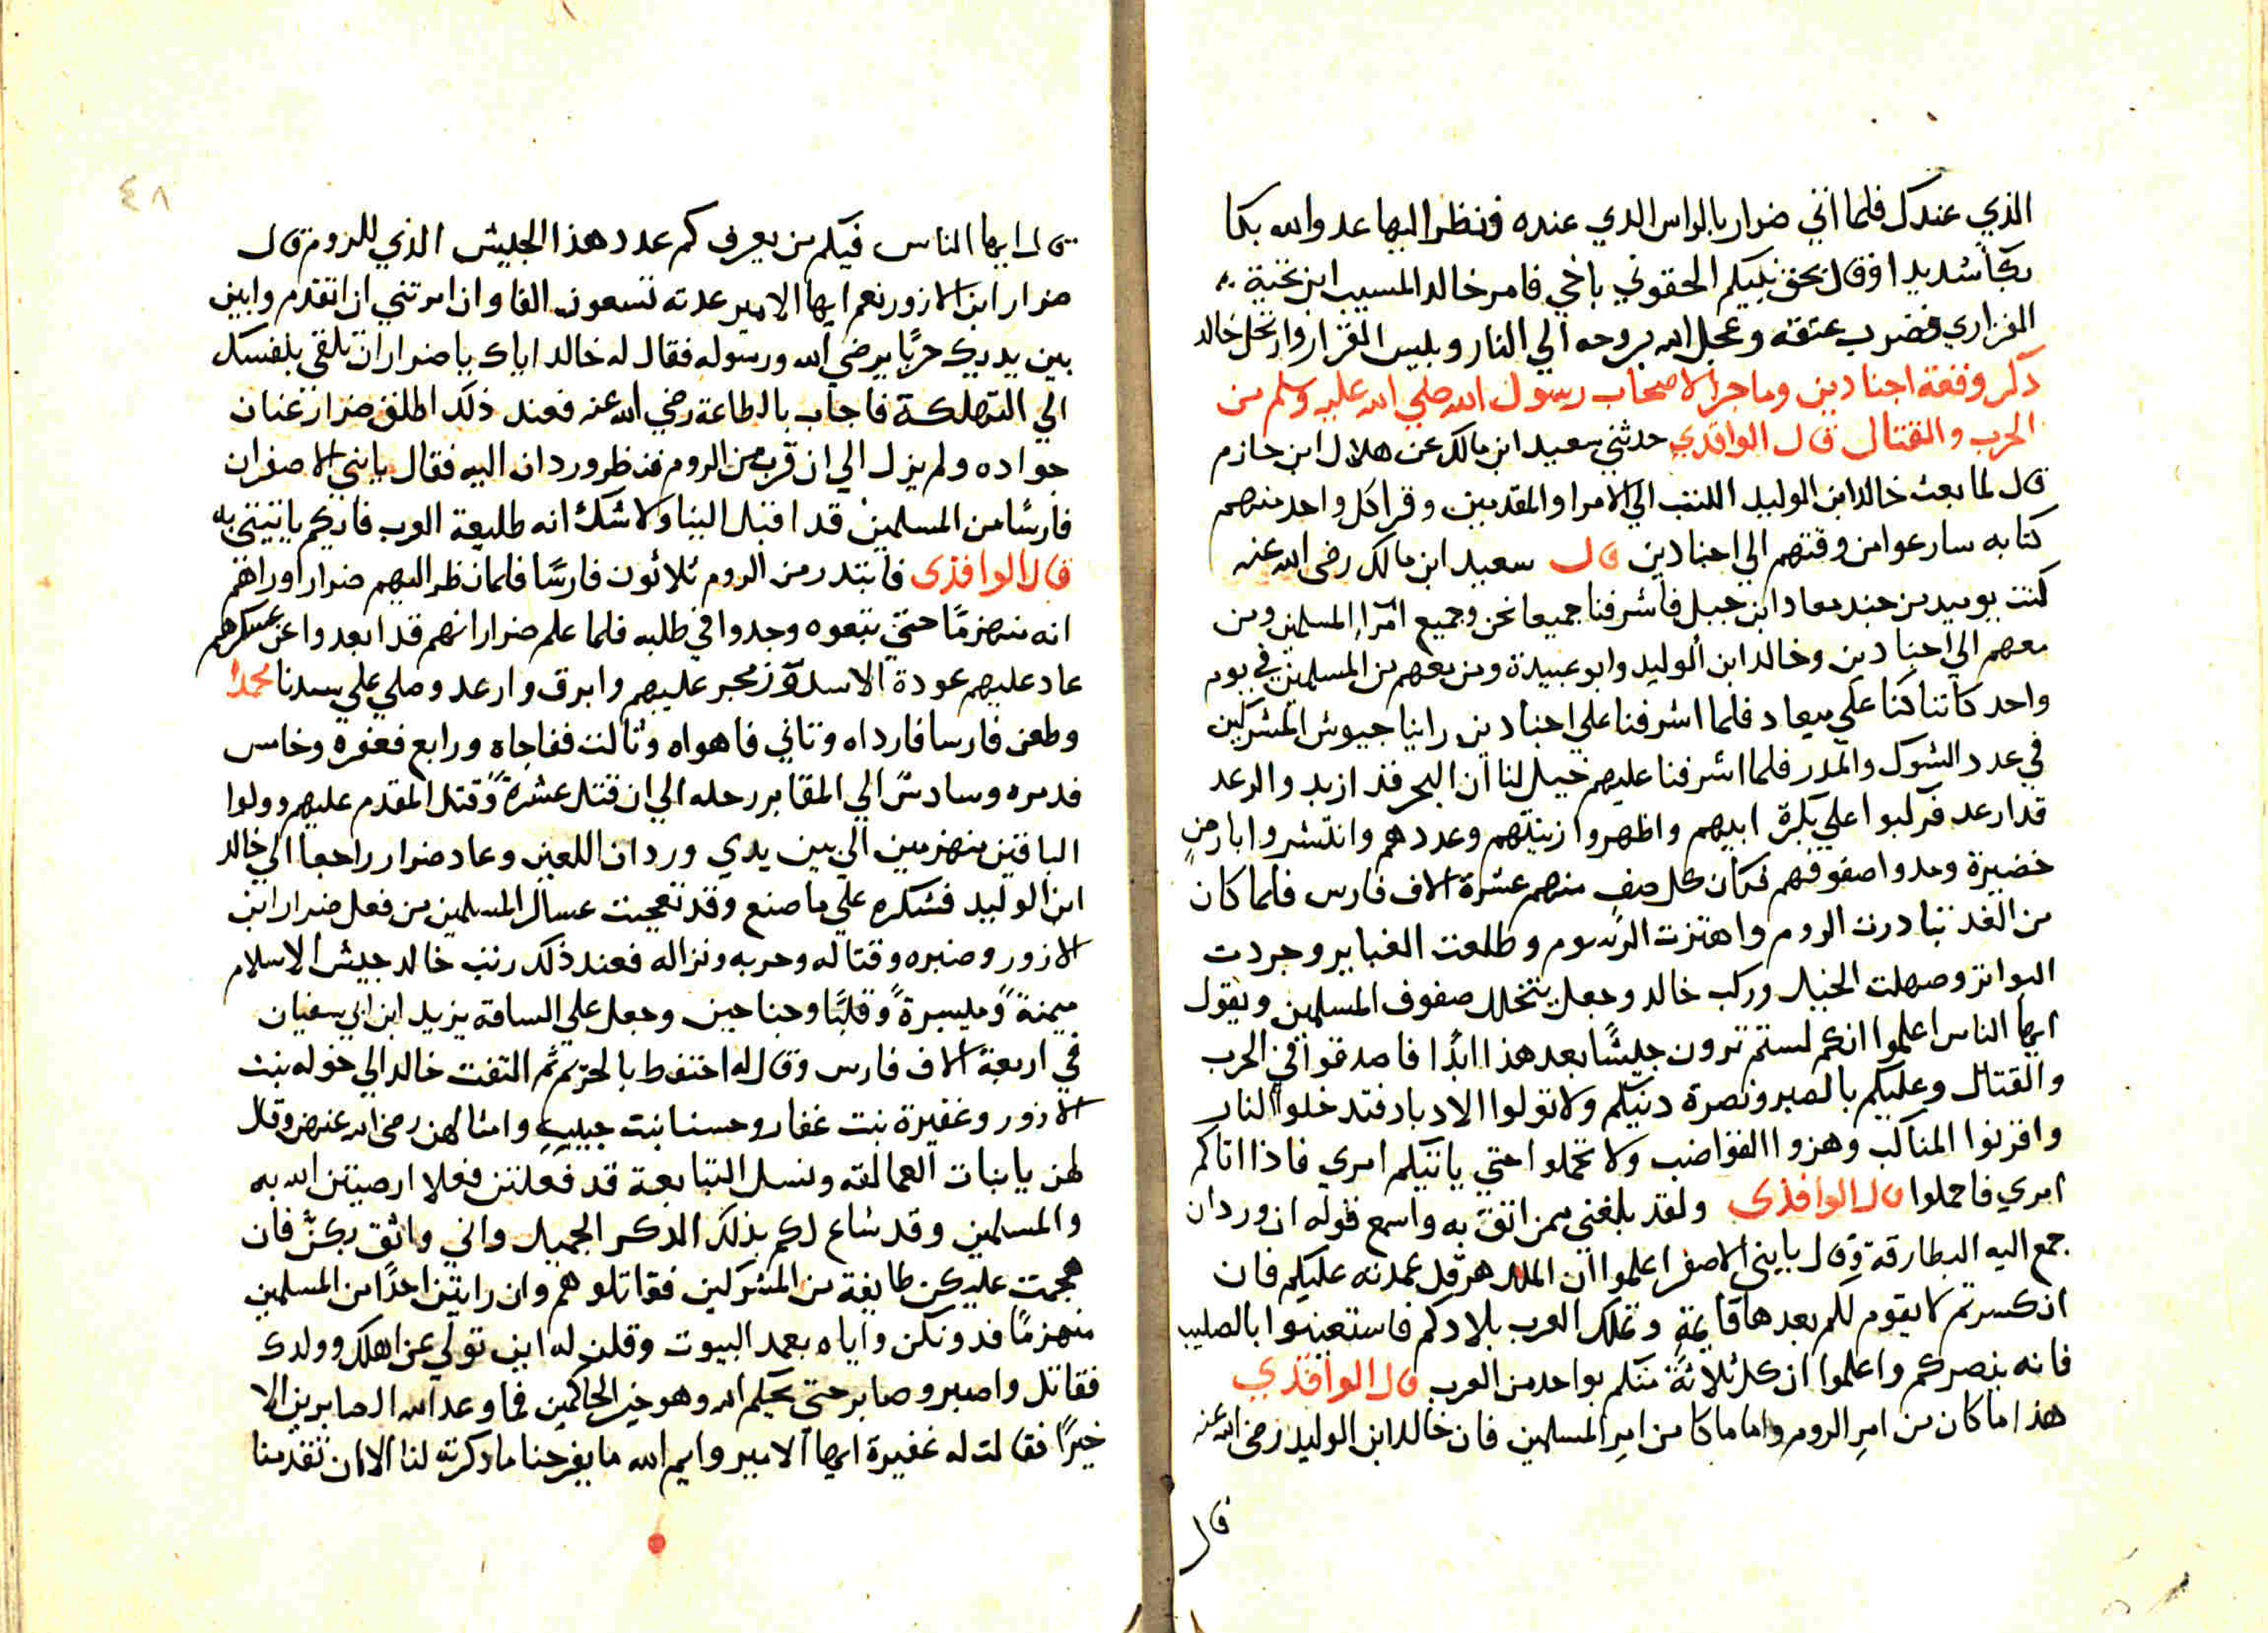 الذي عندك فلما اتي ضرار بالراس الدي عنده فنظر اليها عدو الله بكا
بكاً شديدا وقال بحق نبيكم الحقوني باخي فامر خالد المسيب ابن نخبة
الفزاري فضرب عنقه وعجل الله بروحه الي النار وبيس القرار وارتحل خالد
ذكر وقعة اجنادين وما جرا لاصحاب رسول الله صلي الله عليه وسلم من
الحرب والقتال قال الواقدي حدثني سعيد ابن مالك عن هلال ابن حازم
قال لما بعث خالد ابن الوليد الكتب الي الامرا والمقدمين وقرا كل واحد منهم
كتابه سارعوا من وقتهم الي اجنادين قال سعيد ابن مالك رضي الله عنه
كنت يوميد من جند معاد ابن جبل فاشرفنا جميعا نحن وجميع امرآء المسلمين ومن
معهم الي اجنادين وخالد ابن الوليد وابو عبيدة ومن معهم من المسلمين في يوم
واحد كاننا كنا علي ميعاد فلما اشرفنا علي اجنادين راينا جيوش المشركين
في عدد الشوك والمدر فلما اشرفنا عليهم خيل لنا ان البحر قد ازبد والرعد
قد ارعد فركبوا علي بكرة ابيهم واظهروا زينتهم وعددهم وانتشروا بارض
خضيرة ومدوا صفوفهم فكان كل صف منهم عشرة الاف فارس فلما كان
من الغد تبادرت الروم واهتزت الرسوم وطلعت الغبابر وجردت
البواتر وصهلت الخيل وركب خالد وجعل يتخلل صفوف المسلمين ويقول
ايها الناس اعلموا انكم لستم ترون جيشًا بعد هذا ابدًا فاصدقوا في الحرب
والقتال وعليكم بالصبر ونصرة دينكم ولا تولوا الادبار فتدخلوا النار
واقرنوا المناكب وهزوا القواضب ولا تحملوا حتي ياتيكم امري فاذا اتاكم
امري فاحملوا قال الواقدى ولقد بلغني ممن اثق به واسمع قوله ان وردان
جمع اليه البطارقة وقال يا بني الاصفر اعلموا ان الملك هرقل عمدته عليكم فان
انكسرتم لا يقوم لكم بعدها قايمة وتملك العرب بلادكم فاستعينوا بالصليب
فانه ينصركم واعلموا ان كل ثلاثة منكم بواحد من العرب قال الواقدي
هذا ما كان من امر الروم واما ما كا من امر المسلمين فان خالد ابن الوليد رضي الله عنه
قال
٤٨
قال ايها الناس فيكم من يعرف كم عدد هذا الجيش الذي للروم قال
ضرار ابن الازور نعم ايها الامير عدته تسعون الفا وان امرتني ان اتقدم وابين
بين يديك حربًا يرضي الله ورسوله فقال له خالد اياك يا ضرار ان تلقي بنفسك
الي التهلكة فاجاب بالطاعة رضي الله عنه فعند ذلك اطلق ضرار عنان
جواده ولم يزل الي ان قرب من الروم فنظر وردان اليه فقال يا بني الاصفر ان
فارسًا من المسلمين قد اقبل الينا ولا شك انه طليعة العرب فايكم ياتيني به
قال الواقدى فابتدر من الروم ثلاثون فارسًا فلما نظر اليهم ضرار اوراهم
انه منهزمًا حتي تبعوه وجدوا في طلبه فلما علم ضرار انهم قد ابعدوا عن عسكرهم
عاد عليهم عودة الاسد وزمجر عليهم وابرق وارعد وصلي علي سيدنا محمدا
وطعن فارسا فارداه وثاني فاهواه وثالث ففاجاه ورابع فعفره وخامس
فدمره وسادسً الي المقابر رحله الي ان قتل عشرةً وقتل المقدم عليهم وولوا
الباقين منهزمين الي بين يدي وردان اللعين وعاد ضرار راجعا الي خالد
ابن الوليد فشكره علي ما صنع وقد تعجبت عساكر المسلمين من فعل ضرار ابن
الازور وصبره وقتاله وحربه ونزاله فعند ذلك رتب خالد جيش الاسلام
ميمنةً وميسرةً وقلبًا وجناحين وجعل علي الساقة يزيد ابن ابي سفيان
في اربعة الاف فارس وقال له احتفظ بالحريم ثم التفت خالد الي خوله بنت
الازور وغفيرة بنت غفار وحسنا بنت حبيب وامثالهن رضي الله عنهن وقال
لهن يا بنات العمالقه ونسل التبابعة قد فعلتن فعلا ارضيتن الله به
والمسلمين وقد شاع لكم بذلك الدكر الجميل واني واثق بكنّ فان
هجمت عليكن طايفة من المشركين فقاتلوهم وان رايتن احدًا من المسلمين
منهزمًا فدونكن واياه بعمد البيوت وقلن له اين تولي عن اهلك وولدك
فقاتل واصبر وصابر حتي يحكم الله وهو خير الحاكمين فما وعد الله الصابرين الا
خيرًا فقالت له غفيرة ايها الامير وايم الله ما يفرحنا ما دكرته لنا الا ان تقدمنا